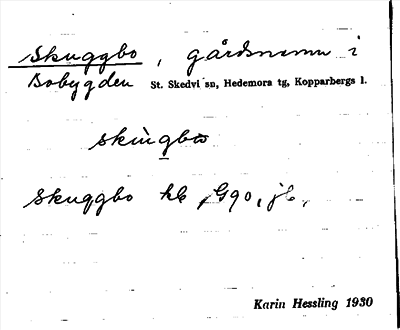 Skuggbo, gårdsnamn i
Bobygden St. Skedvi sn, Hedemora tg, Kopparbergs l.
skùgbω
Skuggbo hb G90, jb,
Karin Hessling 1930